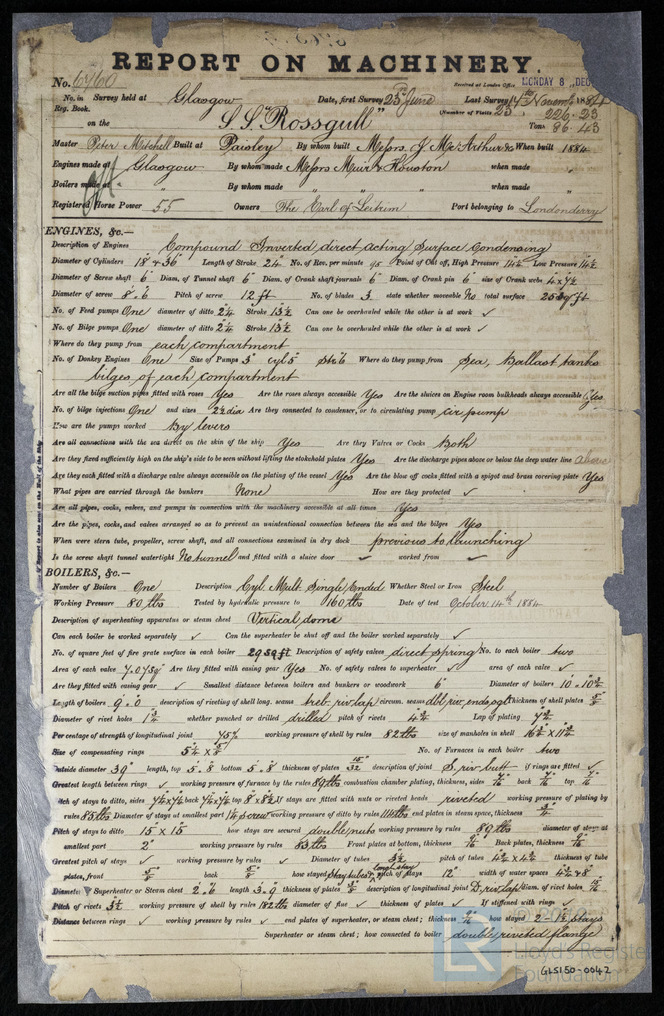 REPORT ON MACHINERY.
No. 6460
Received at London Office MONDAY 8 DEC
No. in Survey held at Glasgow Date, first Survey 23rd June Last Survey 14th Novemr 1884
Reg. Book. (Number of Visits 23)
on the S.S. "Rossgull" Tons 226.23
86.43
Master Peter Mitchell Built at Paisley By whom built Messrs. J McArthur & Co When built 1884
Engines made at Glasgow By whom made Messrs Muir & Houston when made "
Boilers made at " By whom made " " when made "
Registered Horse Power 55 Owners The Earl of Leitrim Port belonging to Londonderry
ENGINES, &c.—
Description of Engines Compound Inverted direct acting Surface Condensing
Diameter of Cylinders 18" & 36" Length of Stroke 24" No. of Rev. per minute 95 Point of Cut off, High Pressure 14½ Low Pressure 14½
Diameter of Screw shaft 6" Diam. of Tunnel shaft 6" Diam. of Crank shaft journals 6" Diam. of Crank pin 6" size of Crank webs 4 x 7½
Diameter of screw 8.6 Pitch of screw 12 ft No. of blades 3 state whether moveable No total surface 25 sq ft
No. of Feed pumps One diameter of ditto 2¼ Stroke 13½ Can one be overhauled while the other is at work ✓
No. of Bilge pumps One diameter of ditto 2¼ Stroke 13½ Can one be overhauled while the other is at work ✓
Where do they pump from each compartment
No. of Donkey Engines One Size of Pumps 3" cyl 5" Str 6 Where do they pump from Sea, Ballast tanks
bilges of each compartment
Are all the bilge suction pipes fitted with roses Yes Are the roses always accessible Yes Are the sluices on Engine room bulkheads always accessible Yes
No. of bilge injections One and sizes 2½ dia Are they connected to condenser, or to circulating pump cir pump
How are the pumps worked By levers
Are all connections with the sea direct on the skin of the ship Yes Are they Valves or Cocks Both
Are they fixed sufficiently high on the ship's side to be seen without lifting the stokehold plates Yes Are the discharge pipes above or below the deep water line above
Are they each fitted with a discharge valve always accessible on the plating of the vessel Yes Are the blow off cocks fitted with a spigot and brass covering plate Yes
What pipes are carried through the bunkers None How are they protected ✓
Are all pipes, cocks, valves, and pumps in connection with the machinery accessible at all times Yes
Are the pipes, cocks, and valves arranged so as to prevent an unintentional connection between the sea and the bilges Yes
When were stern tube, propeller, screw shaft, and all connections examined in dry dock previous to launching
Is the screw shaft tunnel watertight No tunnel and fitted with a sluice door ✓ worked from ✓
BOILERS, &c.—
Number of Boilers One Description Cyl. Mult. Single Ended Whether Steel or Iron Steel
Working Pressure 80 lbs Tested by hydraulic pressure to 160 lbs Date of test October 14th 1884
Description of superheating apparatus or steam chest Vertical dome
Can each boiler be worked separately ✓ Can the superheater be shut off and the boiler worked separately ✓
No. of square feet of fire grate surface in each boiler 29 sq ft Description of safety valves direct spring No. to each boiler two
Area of each valve 7.07 sq" Are they fitted with easing gear Yes No. of safety valves to superheater ✓ area of each valve ✓
Are they fitted with easing gear ✓ Smallest distance between boilers and bunkers or woodwork 6" Diameter of boilers 10.10½
Length of boilers 9.0 description of riveting of shell long. seams treb. riv. lap circum. seams dbl. riv. ends sgle Thickness of shell plates
Diameter of rivet holes whether punched or drilled drilled pitch of rivets 4¼ Lap of plating 7½
Per centage of strength of longitudinal joint 75% working pressure of shell by rules 82 lbs size of manholes in shell 16½ x 11½
Size of compensating rings No. of Furnaces in each boiler two
Outside diameter 39" length, top 5.8 bottom 5.8 thickness of plates 15/32 description of joint S. riv butt if rings are fitted ✓
Greatest length between rings ✓ working pressure of furnace by the rules 89 lbs combustion chamber plating, thickness, sides 7/16 back 7/16 top 7/16
Pitch of stays to ditto, sides 7½x7½ back 7½x7½ top 8x8½ If stays are fitted with nuts or riveted heads riveted working pressure of plating by
rules 85 lbs Diameter of stays at smallest part 1¼ screw working pressure of ditto by rules 116 lbs end plates in steam space, thickness
Pitch of stays to ditto 15 x 15 how stays are secured double nuts working pressure by rules 89 lbs diameter of stays at
smallest part 2" working pressure by rules 83 lbs Front plates at bottom, thickness Back plates, thickness
Greatest pitch of stays ✓ working pressure by rules ✓ Diameter of tubes 3½ pitch of tubes 4½ x 4½ thickness of tube
plates, front back how stayed Stay tubes & long stay pitch of stays 12" width of water spaces
Diameter Superheater or Steam chest 2.6 length 3.9 thickness of plates description of longitudinal joint D. riv lap diam. of rivet holes
Pitch of rivets 3½ working pressure of shell by rules 182 lbs diameter of flue ✓ thickness of plates ✓ If stiffened with rings ✓
Distance between rings ✓ working pressure by rules ✓ end plates of superheater, or steam chest; thickness 9/16 how stayed 2 - 1½ Stays
Superheater or steam chest; how connected to boiler double riveted flange
LR
Lloyd's Register
Foundation
GLS150-0042